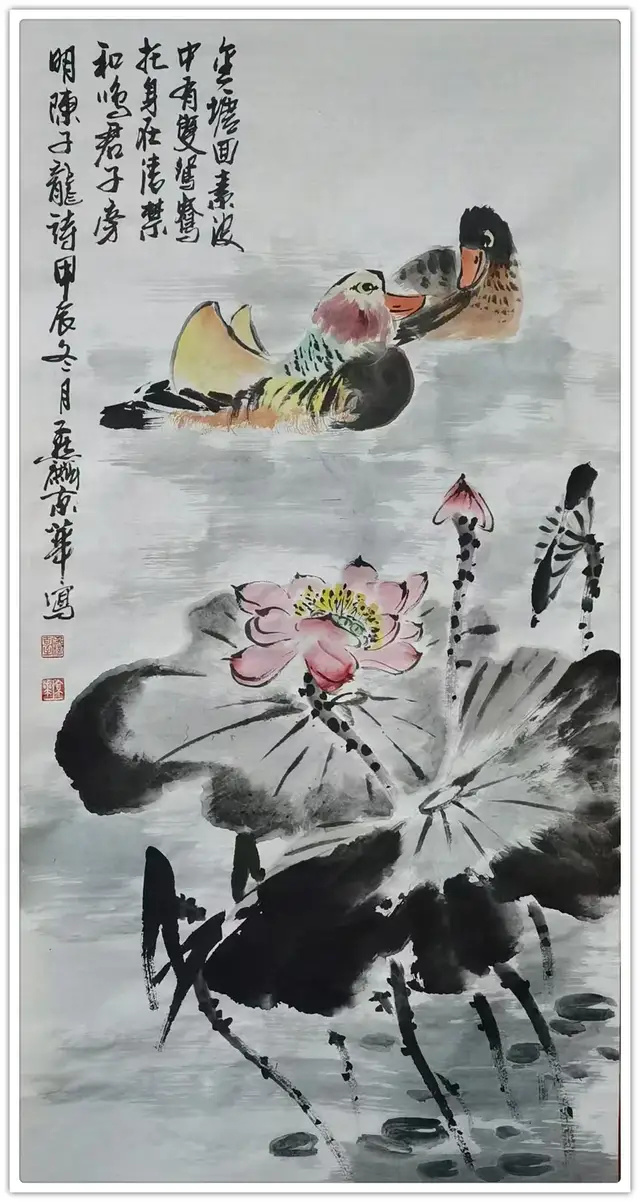 金塘回素波
中有雙鴛鴦
托身在清禁
和鳴君子旁
明陳子龍詩甲辰冬月燕京華寫